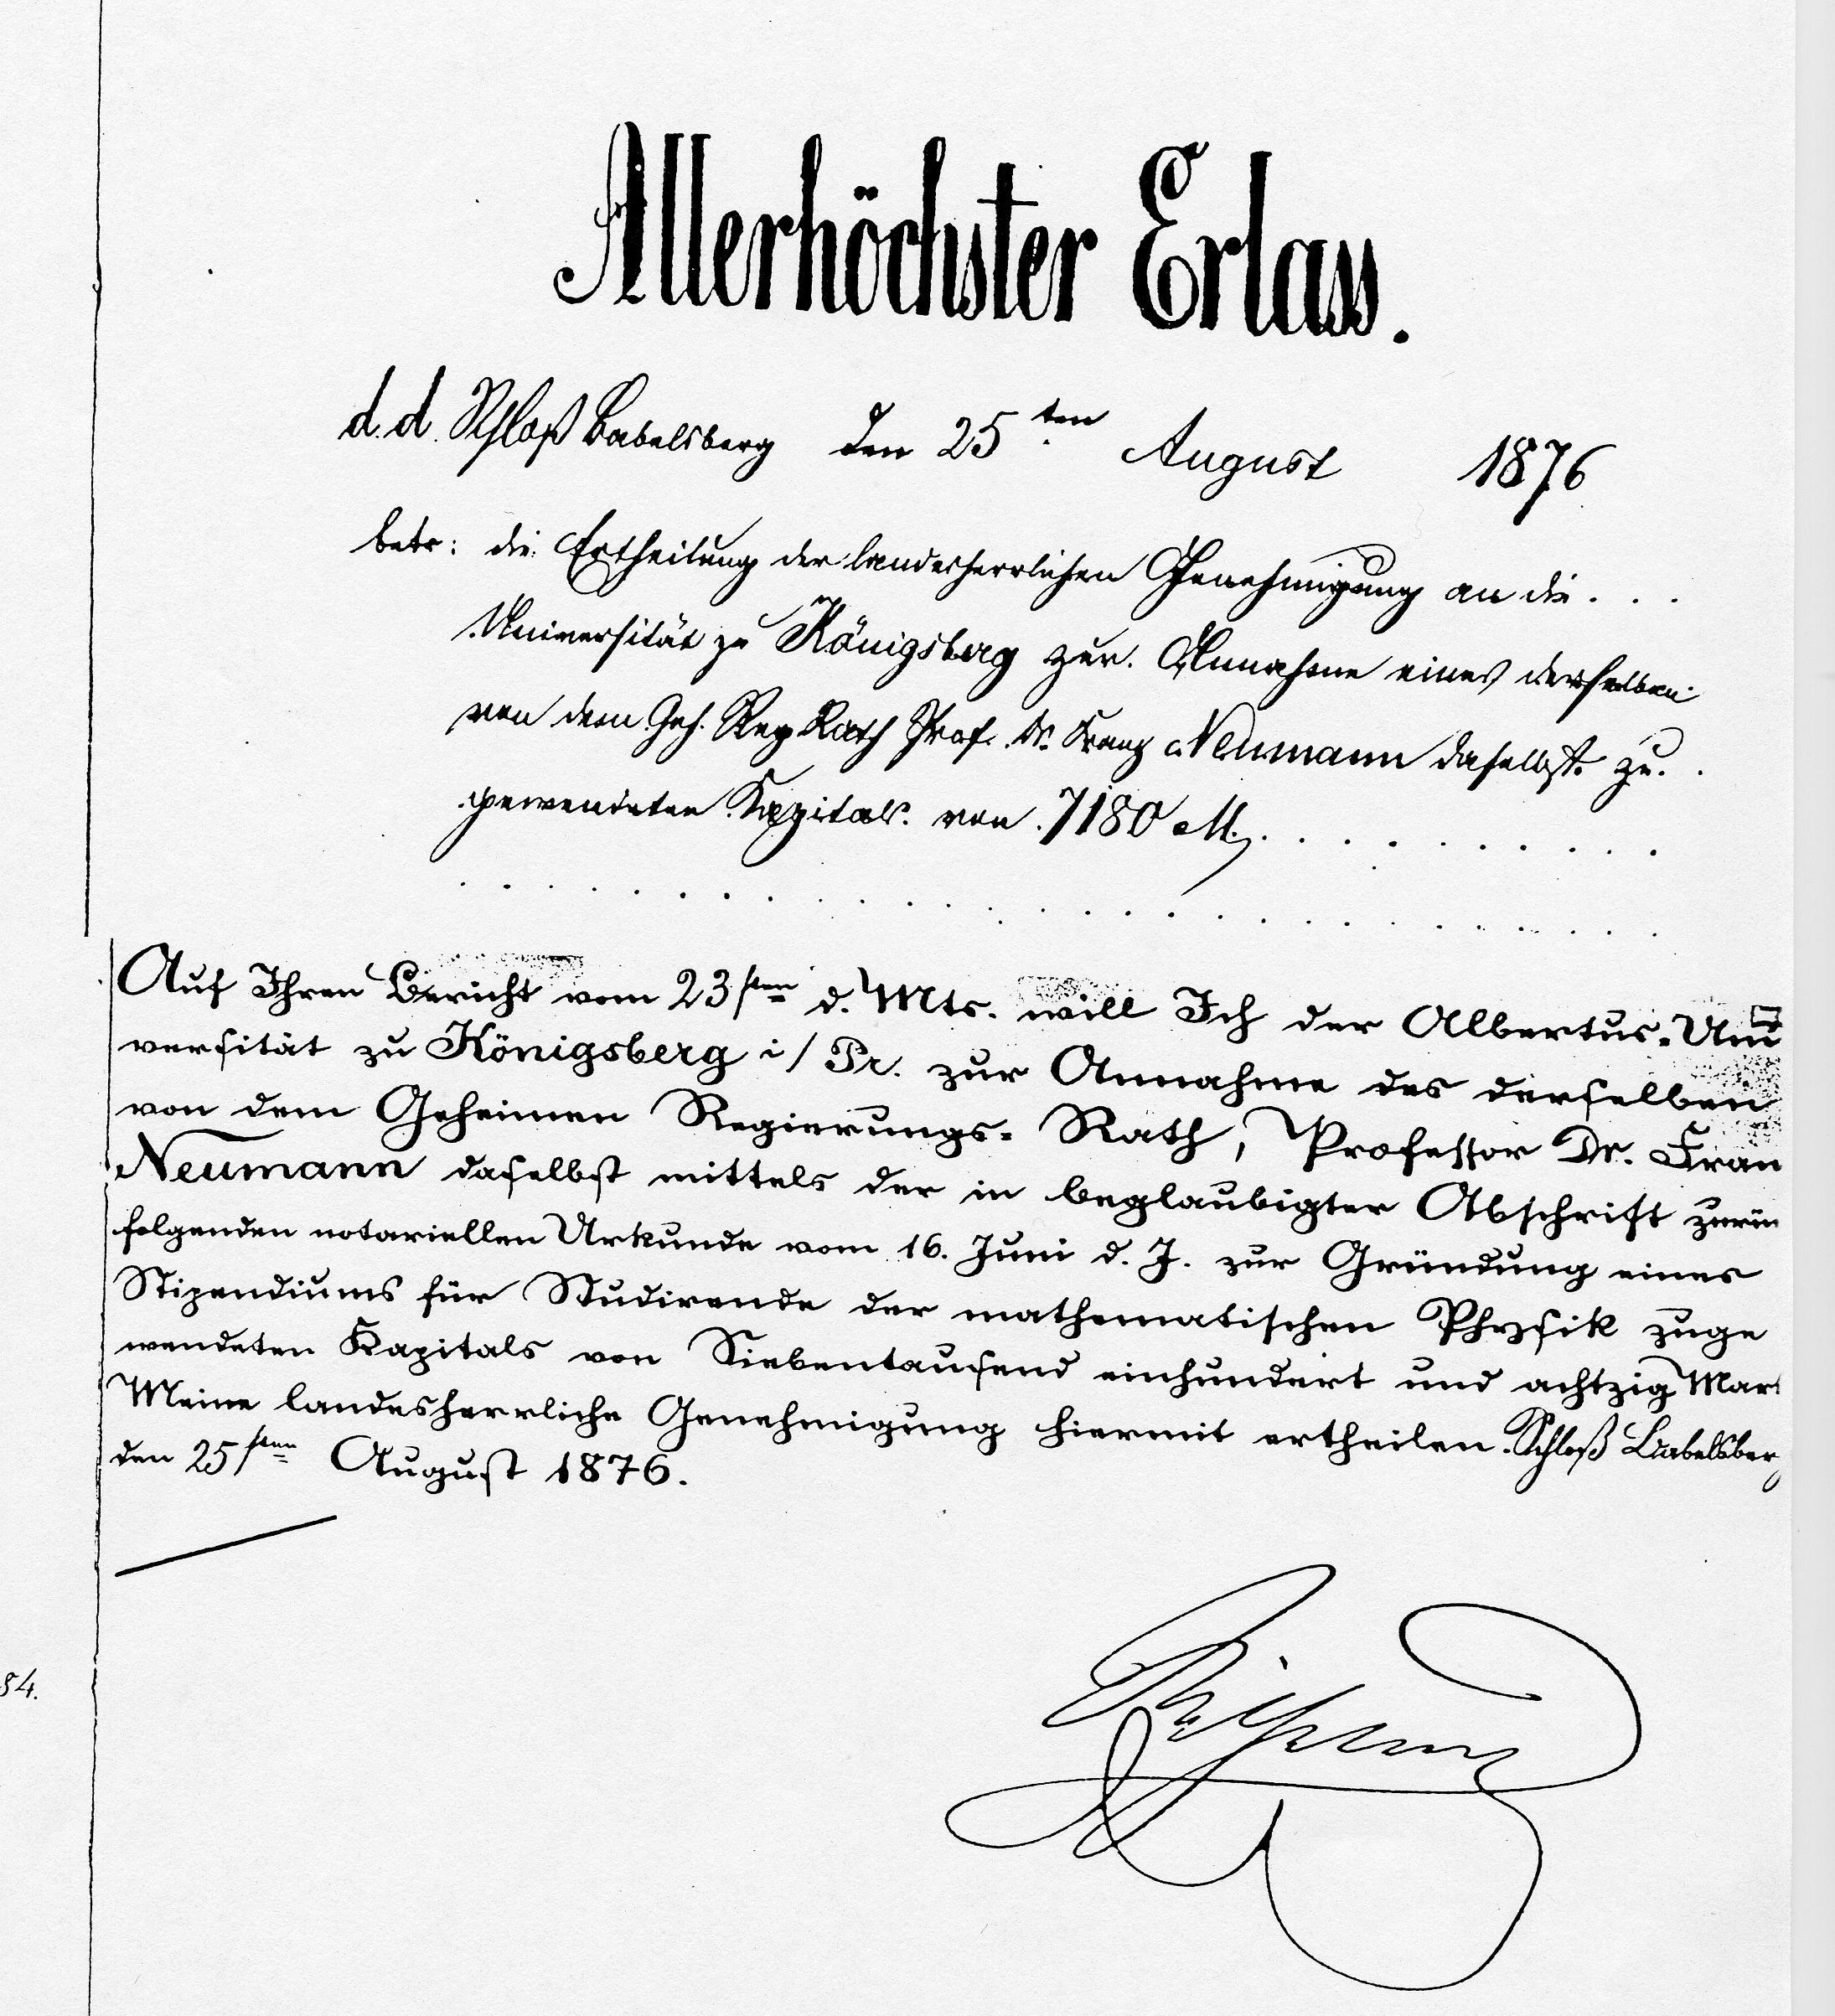 Allerhöchster Erlass.
d. d. Schloß Babelsberg den 25ten August 1876
betr: die Ertheilung der landesherrlichen Genehmigung an die . . .
Universität zu Königsberg zur Annahme eines derselben
von dem Geh. Reg Rath Prof. Dr. Franz Neumann daselbst zu. .
gewendeten Kapitals von 7180 M. . . . . . . . . . .
Auf Ihren Bericht vom 23sten d. Mts. will Ich der Albertus-Uni
versität zu Königsberg i/ Pr. zur Annahme des derselben
von dem Geheimen Regierungs-Rath, Professor Dr. Fran
Neumann daselbst mittels der in beglaubigter Abschrift zurü
folgenden notariellen Urkunde vom 16. Juni d. J. zur Gründung eines
Stipendiums für Studirende der mathematischen Physik zuge
wendeten Kapitals von Siebentausend einhundert und achtzig Mar
Meine landesherrliche Genehmigung hiermit ertheilen. Schloß Babelsberg
den 25sten August 1876.
84.
Wilhelm